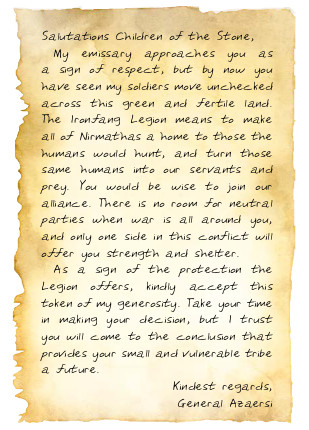 Salutations Children of the Stone,
My emissary approaches you as
a sign of respect, but by now you
have seen my soldiers move unchecked
across this green and fertile land.
The Ironfang Legion means to make
all of Nirmathas a home to those the
humans would hunt, and turn those
same humans into our servants and
prey. You would be wise to join our
alliance. There is no room for neutral
parties when war is all around you,
and only one side in this conflict will
offer you strength and shelter.
As a sign of the protection the
Legion offers, kindly accept this
token of my generosity. Take your time
in making your decision, but I trust
you will come to the conclusion that
provides your small and vulnerable tribe
a future.
Kindest regards,
General Azaersi